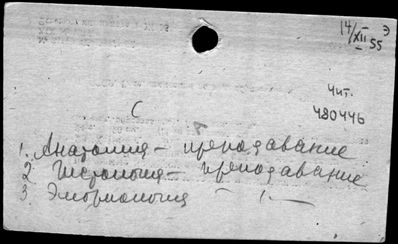 14/XII 55 Э
Чит.
480446
С
1. Анатомия – преподавание
2 Гистология – преподавание
3. Эмбриология – " –